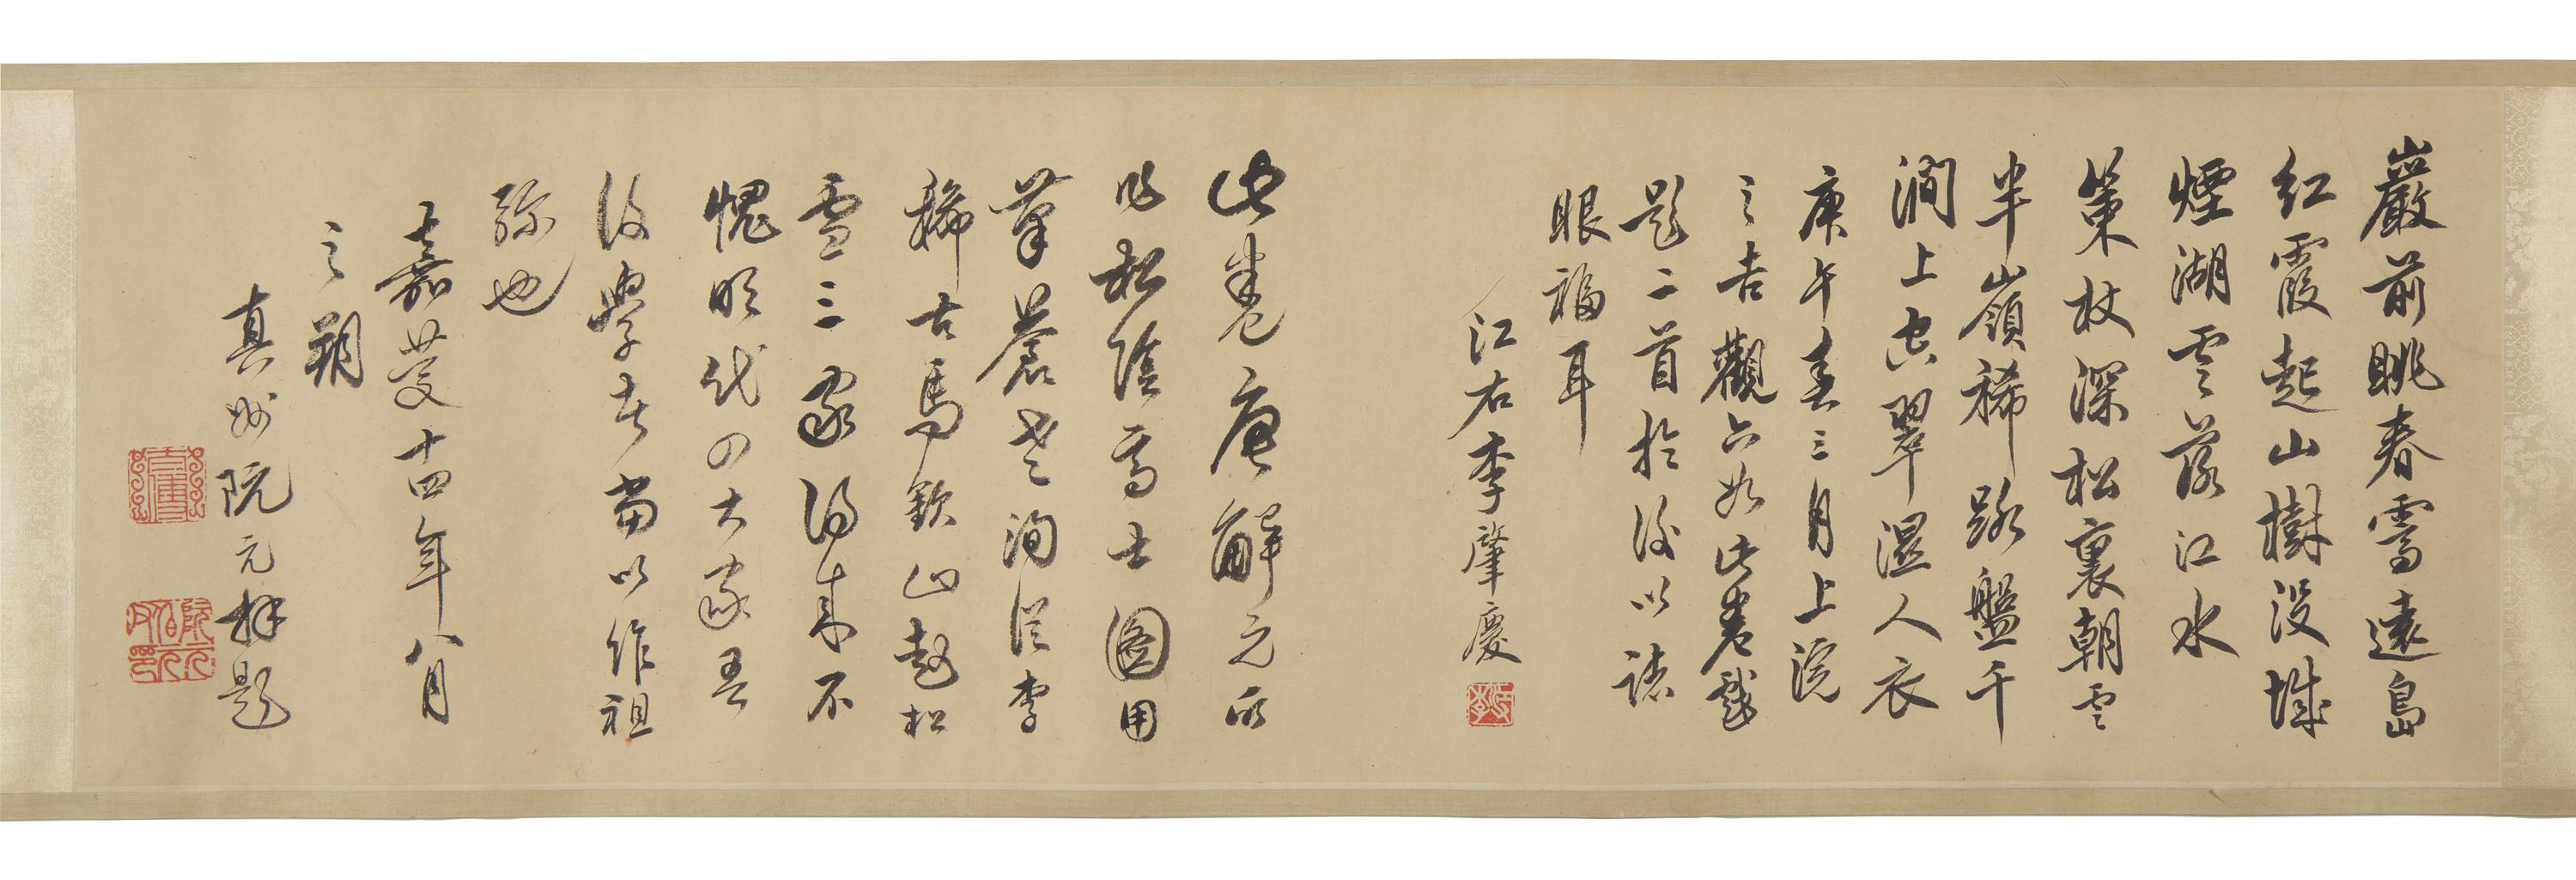 巖前眺春雪遠島
紅霞起山樹沒城
煙湖雲落江水
策杖深松裏朝雲
半嶺稀路盤千
澗上空翠濕人衣
庚午春三月上浣
之吉觀六如此卷戲
題二首於後以誌
眼福耳
江右李肇慶
此卷唐解元所
作松陰高士圖用
筆蒼老洵從李
稀古馬欽山趙松
雪三家得來不
愧明代四大家吾
後學者當以作祖
孫也
嘉慶十四年八月
之朔
真州阮元拜題